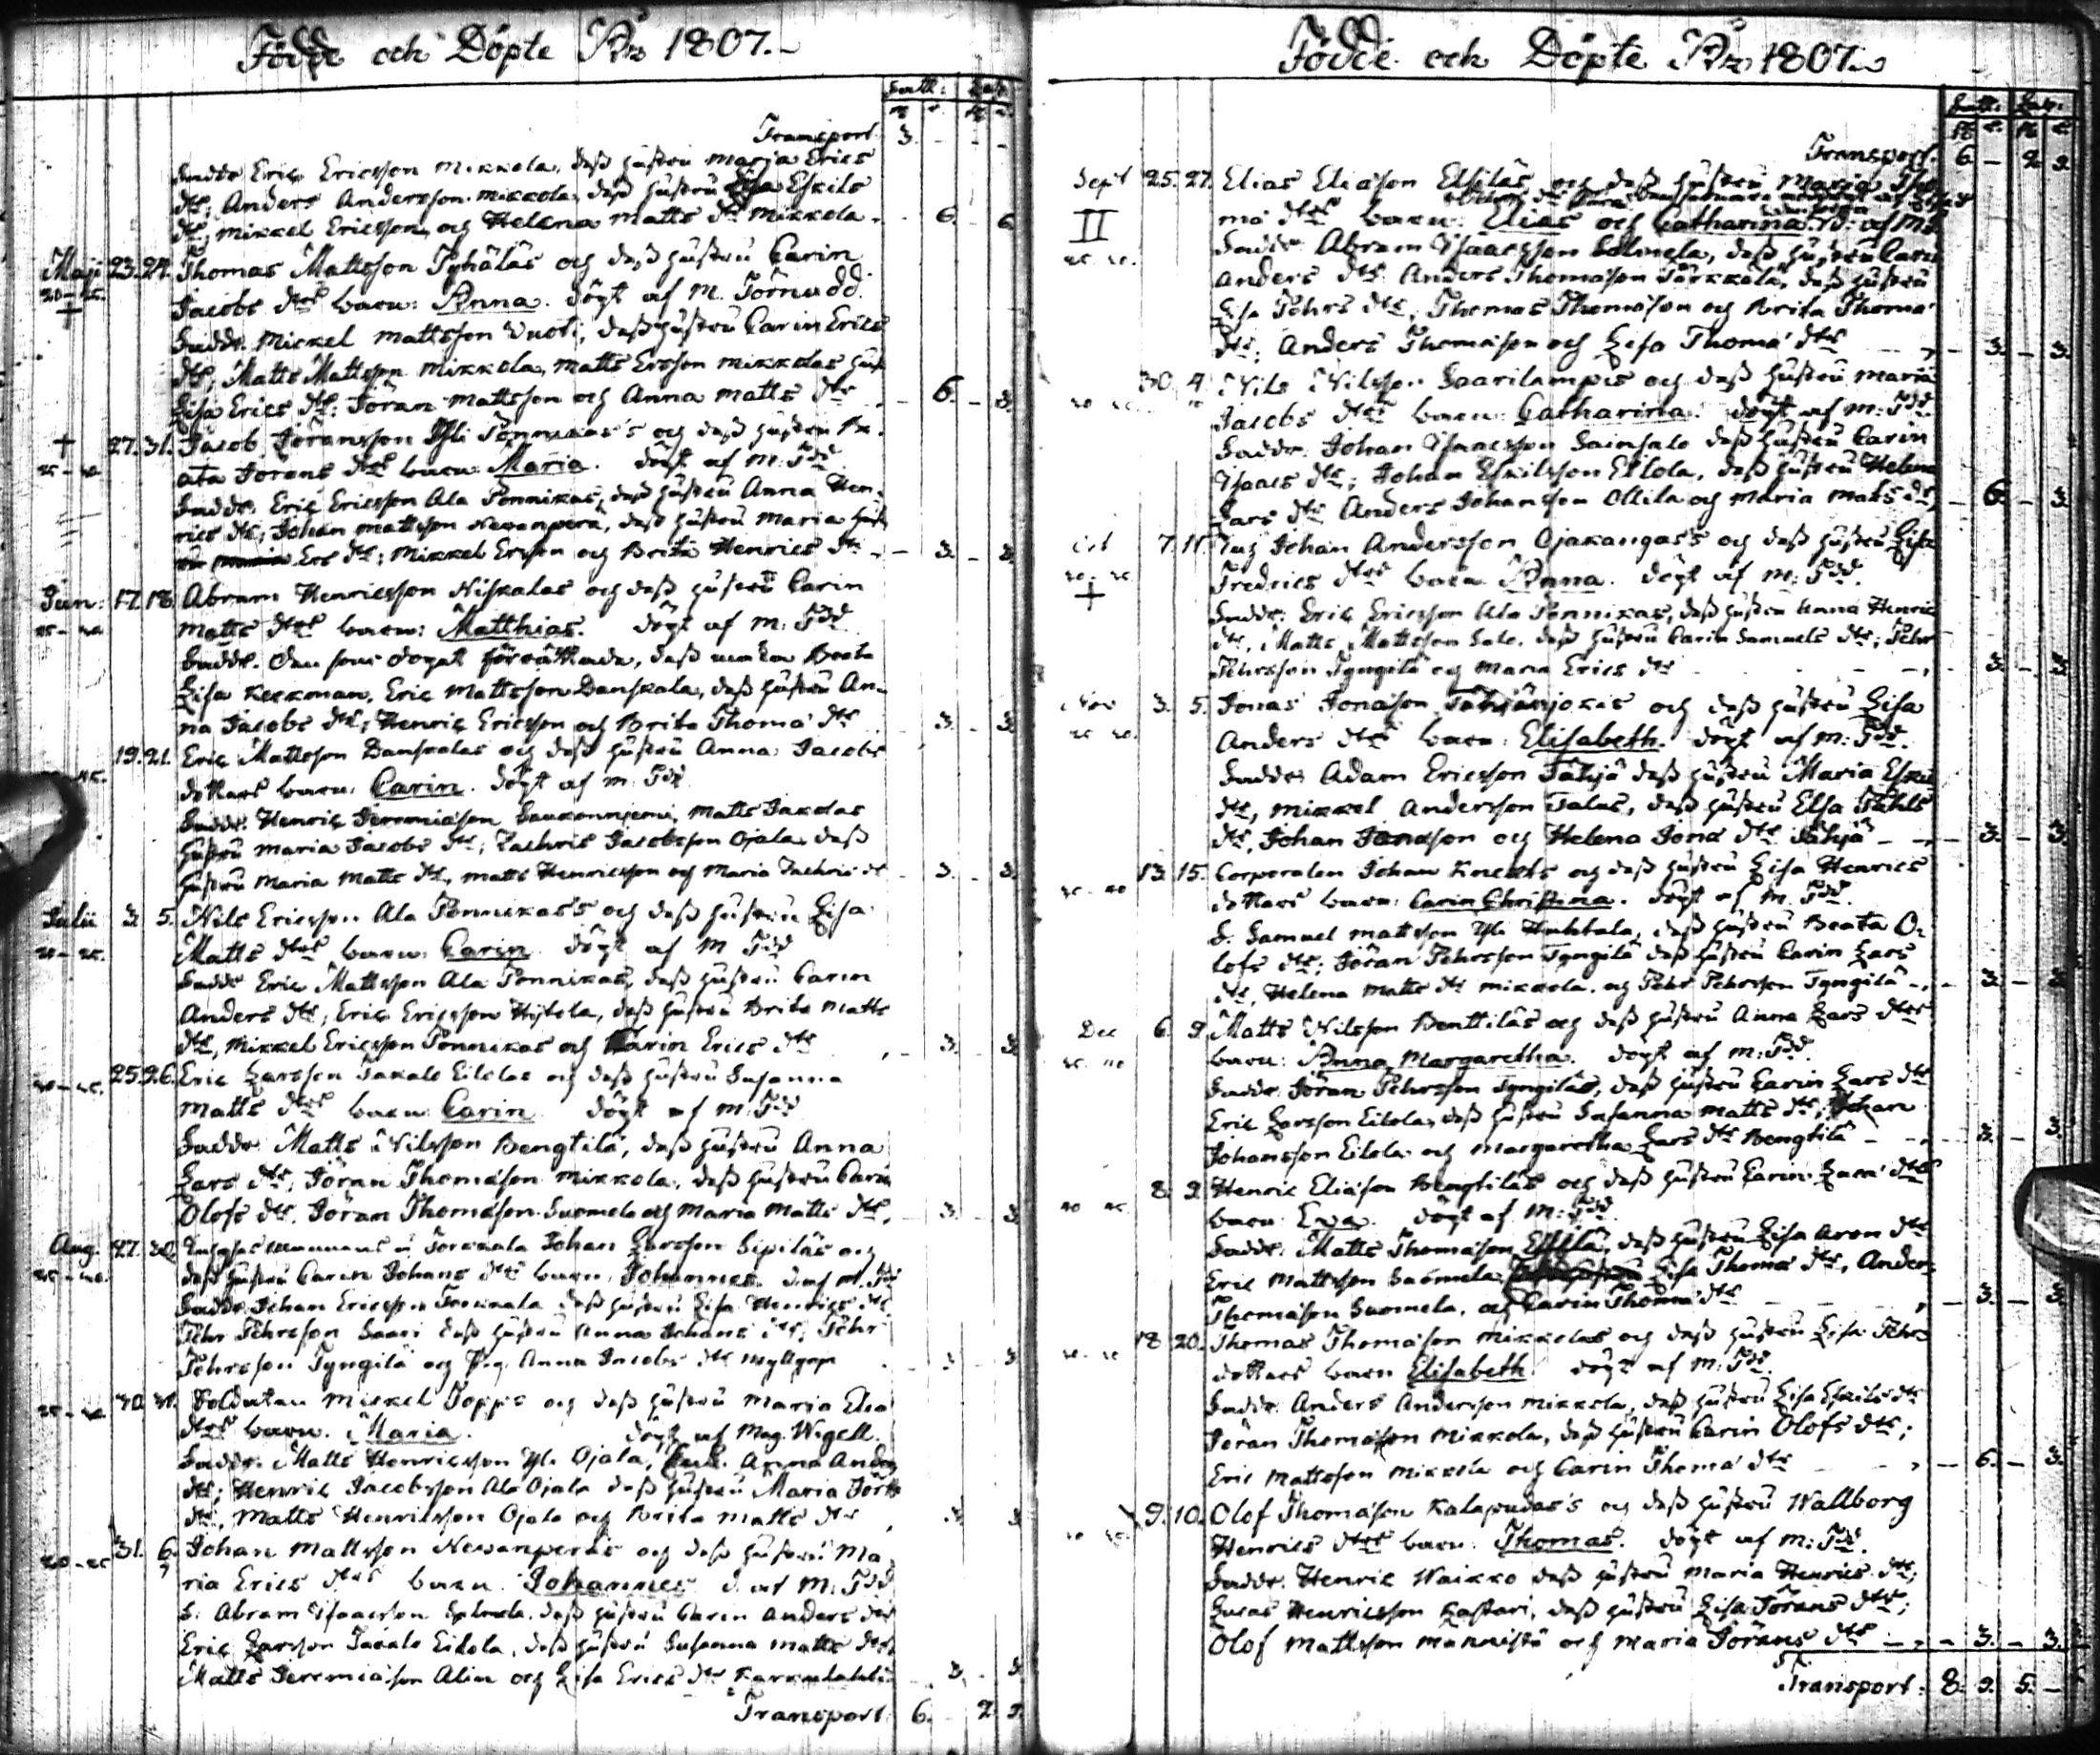 Födde och Döpte År 1807.
Transport 3.
Faddr Eric Ericsson Mikkola, dess hustru Maria Erics
dtr; Anders Andersson Mikkola, dess hustru Lisa Eskils
dtr; Mikkel Ericsson och Helena Matts dtr Mikkola. 6. 6.
Maji 23. 24. Thomas Mattsson Pyhäläs och dess hustru Carin
Jacobs dtrs barn: Anna. döpt af M. Törnudd.
Faddr. Mickel Mattsson Vuoti, dess hustru Carin Erics
dtr; Matts Mattsson Mikkola, Matts Ersson Mikkolas hust
Lisa Erics dtr; Jöran Mattsson och Anna Matts dtr 6. 3.
27. 31. Jacob Jöransson Yli Pönnikäs's och dess hustru Be-
ata Jörans dtrs barn: Maria. döpt af M: Tdd
Faddr. Eric Ericsson Ala Pönnikas, dess hustru Anna Hen-
rics dtr; Johan Mattsson Nevanperä, dess hustru Maria
Ers dtr; Mikkel Ersson och Brita Henrics dtr 3. 3.
Jun: 17. 18. Abram Henricsson Niskalas och dess hustru Carin
Matts dtrs barn: Matthias. döpt af M: Tdd
Faddr. den som dopet förrättade, dess maka Beata
Lisa Keckman, Eric Mattsson Danskala, dess hustru An-
na Jacobs dtr; Henric Ericsson och Brita Thomæ dtr 3. 3.
19. 21. Eric Mattsson Danskalas och dess hustru Anna Jacobs
dotters barn: Carin. döpt af M: Tdd
Faddr. Henric Jeremiasson Saukonniemi, Matts Jakolas
hustru Maria Jacobs dtr; Zachris Jacobsson Ojala, dess
hustru Maria Matts dtr, Matts Henricsson och Maria Zachris dr 3. 3.
Julii 3. 5. Nils Ericsson Ala Pönnikas's och dess hustru Lisa
Matts dtrs barn: Carin. döpt af M Tdd
Faddr Eric Mattsson Ala Pönnikas, dess hustru Carin
Anders dtr; Eric Ericsson Hytola, dess hustru Brita Matts
dtr, Mikkel Ericsson Pönnikas och Carin Erics dtr 3. 3.
25. 26. Eric Larsson Jakalo Eilolas och dess hustru Susanna
Matts dtrs barn: Carin. döpt af M: Tdd
Faddr. Matts Nilsson Bengtilä, dess hustru Anna
Lars dtr; Jöran Thomasson Mikkola, dess hustru Carin
Olofs dtr, Jöran Thomasson Suomela och Maria Matts dtr. 3. 3.
Aug. 27. 30. Torkkala Johan Larsson Sipiläs och
dess hustru Carin Johans dtrs barn: Johannes. d. af M. Tdd
Faddr. Johan Ericsson Torkkala dess hustru Lisa Henrics dtr
Pehr Pehrsson Saari dess hustru Anna Johans dtr; Pehr
Pehrsson Tyngilä och Pig. Anna Jacobs dtr 3. 3.
30. 31. Soldaten Mickel Topps och dess hustru Maria Elia
dtrs barn: Maria. döpt af Mag. Wigell.
Faddr. Matts Henricsson Yli Ojala, Anna Anders
dtr; Henric Jacobsson Ala Ojala dess hustru Maria Jörs
dtr, Matts Henricsson Ojala och Brita Matts dtr 3. 3.
31. 6. Johan Mattsson Nevanperäs och dess hustru Ma-
ria Erics dtrs barn: Johannes d. af M: Tdd
F. Abram Isaacsson dess hustru Carin Anders dtr
Eric Larsson Jakalo Eilola, dess hustru Susanna Matts dtr
Matts Jeremiasson Alin och Lisa Erics dtr 3. 3.
Transport 6. 2. 2.
Födde och Döpte År 1807.
Transport. 6. 2. 2.
Sept 25. 27. Elias Eliasson Eskiläs och dess hustru Maria Tho-
mæ dtrs barn: Elias och Catharina. d: af M:
Faddr. Abram Isaacsson Salmela, dess hustru Carin
Anders dtr. Anders Thomasson Törkkölä, dess hustru
Lisa Pehrs dtr, Thomas Thomasson och Brita Thomæ
dtr; Anders Thomasson och Lisa Thomæ dtr 3. 3.
30. 4. Nils Nilsson Saarilampis och dess hustru Maria
Jacobs dtrs barn: Catharina. döpt af M: Tdd
Faddr. Johan Isaacsson Sainsalo dess hustru Carin
Isaacs dtr; Johan Eskilsson Eilola, dess hustru Helena
Lars dtr Anders Johansson Ollila och Maria Matts dtr 6. 3.
Oct 7. 11. Johan Andersson Ojakangas's och dess hustru Lisa
Fredrics dtrs barn: Anna. döpt af M: Tdd.
Faddr. Eric Ericsson Ala Pönnikas, dess hustru Anna Henric
dtr, Matts Mattsson Salo, dess hustru Carin Samuels dtr; Pehr
Pehrsson Tyngilä och Maria Erics dtr 3. 3.
Nov 3. 5. Jonas Jonasson Tähjänjokis och dess hustru Lisa
Anders dtrs barn: Elisabeth. döpt af M: Tdd.
Faddr. Adam Ericsson Tähjä dess hustru Maria Eskils
dtr, Mikkel Andersson Talus, dess hustru Elsa Påhls
dtr, Johan Jonasson och Helena Jonæ dtr Tähjä 3. 3.
13. 15. Corporalen Johan Knechts och dess hustru Lisa Henrics
dotters barn: Carin Christina. döpt af M. Tdd.
F. Samuel Mattsson Yli Huhtala, dess hustru Beata O-
lofs dtr; Jöran Pehrsson Tyngilä dess hustru Carin Lars
dtr, Helena Matts dtr Mikkola, och Pehr Pehrsson Tyngilä 3. 3.
Dec 6. 9. Matts Nilsson Benttiläs och dess hustru Anna Lars dtrs
barn: Anna Margaretha. döpt af M: Tdd.
Faddr. Jöran Pehrsson Tyngiläs, dess hustru Carin Lars dtr
Eric Larsson Eilola, dess hustru Susanna Matts dtr; Johan
Johansson Eilola och Margaretha Lars dtr Bengtilä 3. 3.
8. 9. Henric Eliasson Bengtiläs och dess hustru Carin dtrs
barn: Eva. döpt af M: Tdd.
Faddr. Matts Thomasson Eskilä, dess hustru Lisa Aron dtr
Eric Mattsson Suomela, Lisa Thomæ dtr, Anders
Thomasson Suomela, och Carin Thomæ dtr 3. 3.
18. 20. Thomas Thomasson Mikkolas och dess hustru Lisa Pehrs
dotters barn Elisabeth. döpt af M: Tdd.
Faddr. Anders Andersson Mikkola, dess hustru Lisa Eskils dtr
Jöran Thomasson Mikkola, dess hustru Carin Olofs dtr;
Eric Mattsson Mikkola och Carin Thomæ dtr 6. 3.
9. 10. Olof Thomasson Kalapudas's och dess hustru Wallborg
Henrics dtrs barn: Thomas. döpt af M: Tdd.
Faddr. Henric Waikko dess hustru Maria Henrics dtr;
Lucas Henricsson Kastari, dess hustru Lisa Jörans dtr;
Olof Mattsson Mannistö och Maria Jörans dtr 3. 3.
Transport: 8. 9. 5.